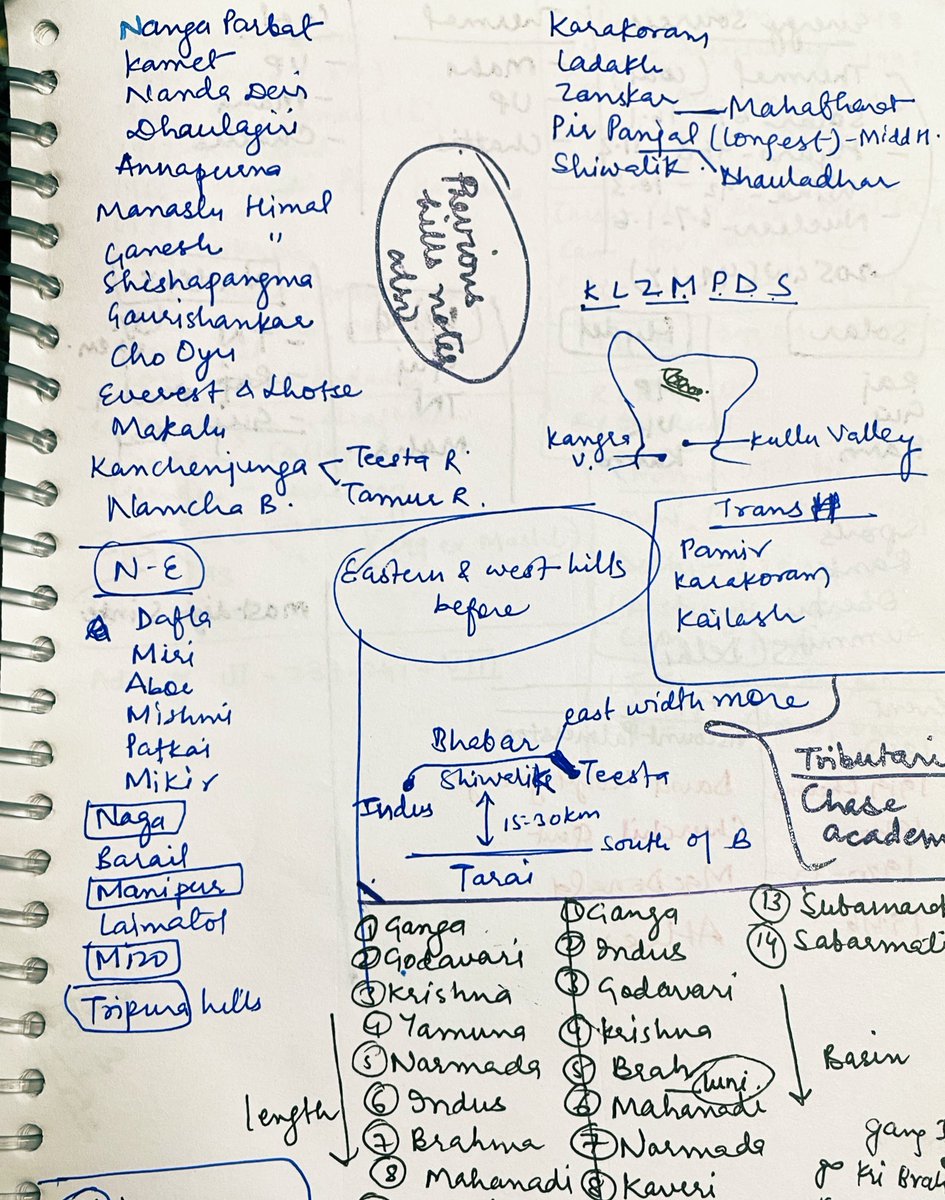 Nanga Parbat
Kamet
Nanda Devi
Dhaulagiri
Annapurna
Manaslu Himal
Ganesh "
Shishapangma
Gaurishankar
Cho Oyu
Everest & Lhotse
Makalu
Kanchenjunga
Teesta R.
Tamur R.
Namcha B.
Karakoram
Ladakh
Zanskar — Mahabharat
Pir Panjal (Longest) - Midd H.
Shiwalik
Dhauladhar
Previous
hills notes
also
K L Z M P D S
Kangra
V.
Kullu Valley
Trans H
Pamir
Karakoram
Kailash
Eastern & west hills
before
N-E
Dafla
Miri
Abor
Mishmi
Patkai
Mikir
Naga
Barail
Manipur
Laimatol
Mizo
Tripura hills
east width more
Bhabar
Shiwalik
Teesta
Indus
15-30km
South of B
Tarai
Tributari
Chase
academ
length
① Ganga
② Godavari
③ Krishna
④ Yamuna
⑤ Narmada
⑥ Indus
⑦ Brahma
⑧ Mahanadi
① Ganga
② Indus
③ Godavari
④ Krishna
⑤ Brah
luni
⑥ Mahanadi
⑦ Narmada
⑧ Kaveri
⑬ Subarnar
⑭ Sabarmati
Basin
Gang I
Kri Brah